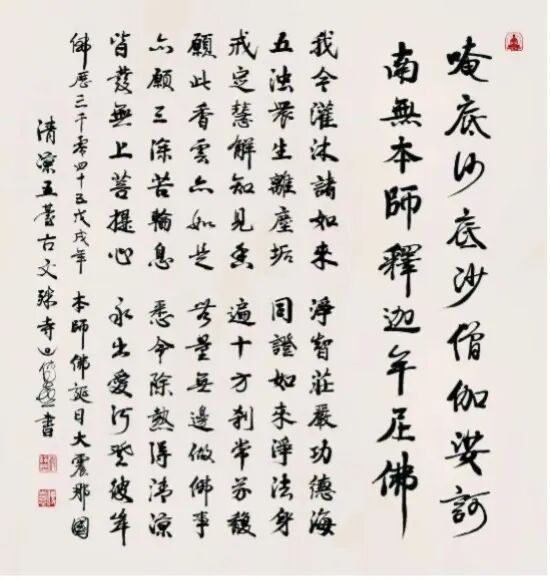 唵底沙底沙僧伽娑訶
南無本師釋迦牟尼佛
我今灌沐諸如來 淨智莊嚴功德海
五浊眾生離塵垢 同證如來淨法身
戒定慧解知見香 遍十方剎常芬馥
願此香雲亦如是 無量無邊做佛事
亦願三塗苦輪息 悉令除熱得清涼
皆發無上菩提心 永出愛河登彼岸
佛歷三千零四十五戊戌年 本師佛誕日大震那國
清涼五臺古文殊寺 書